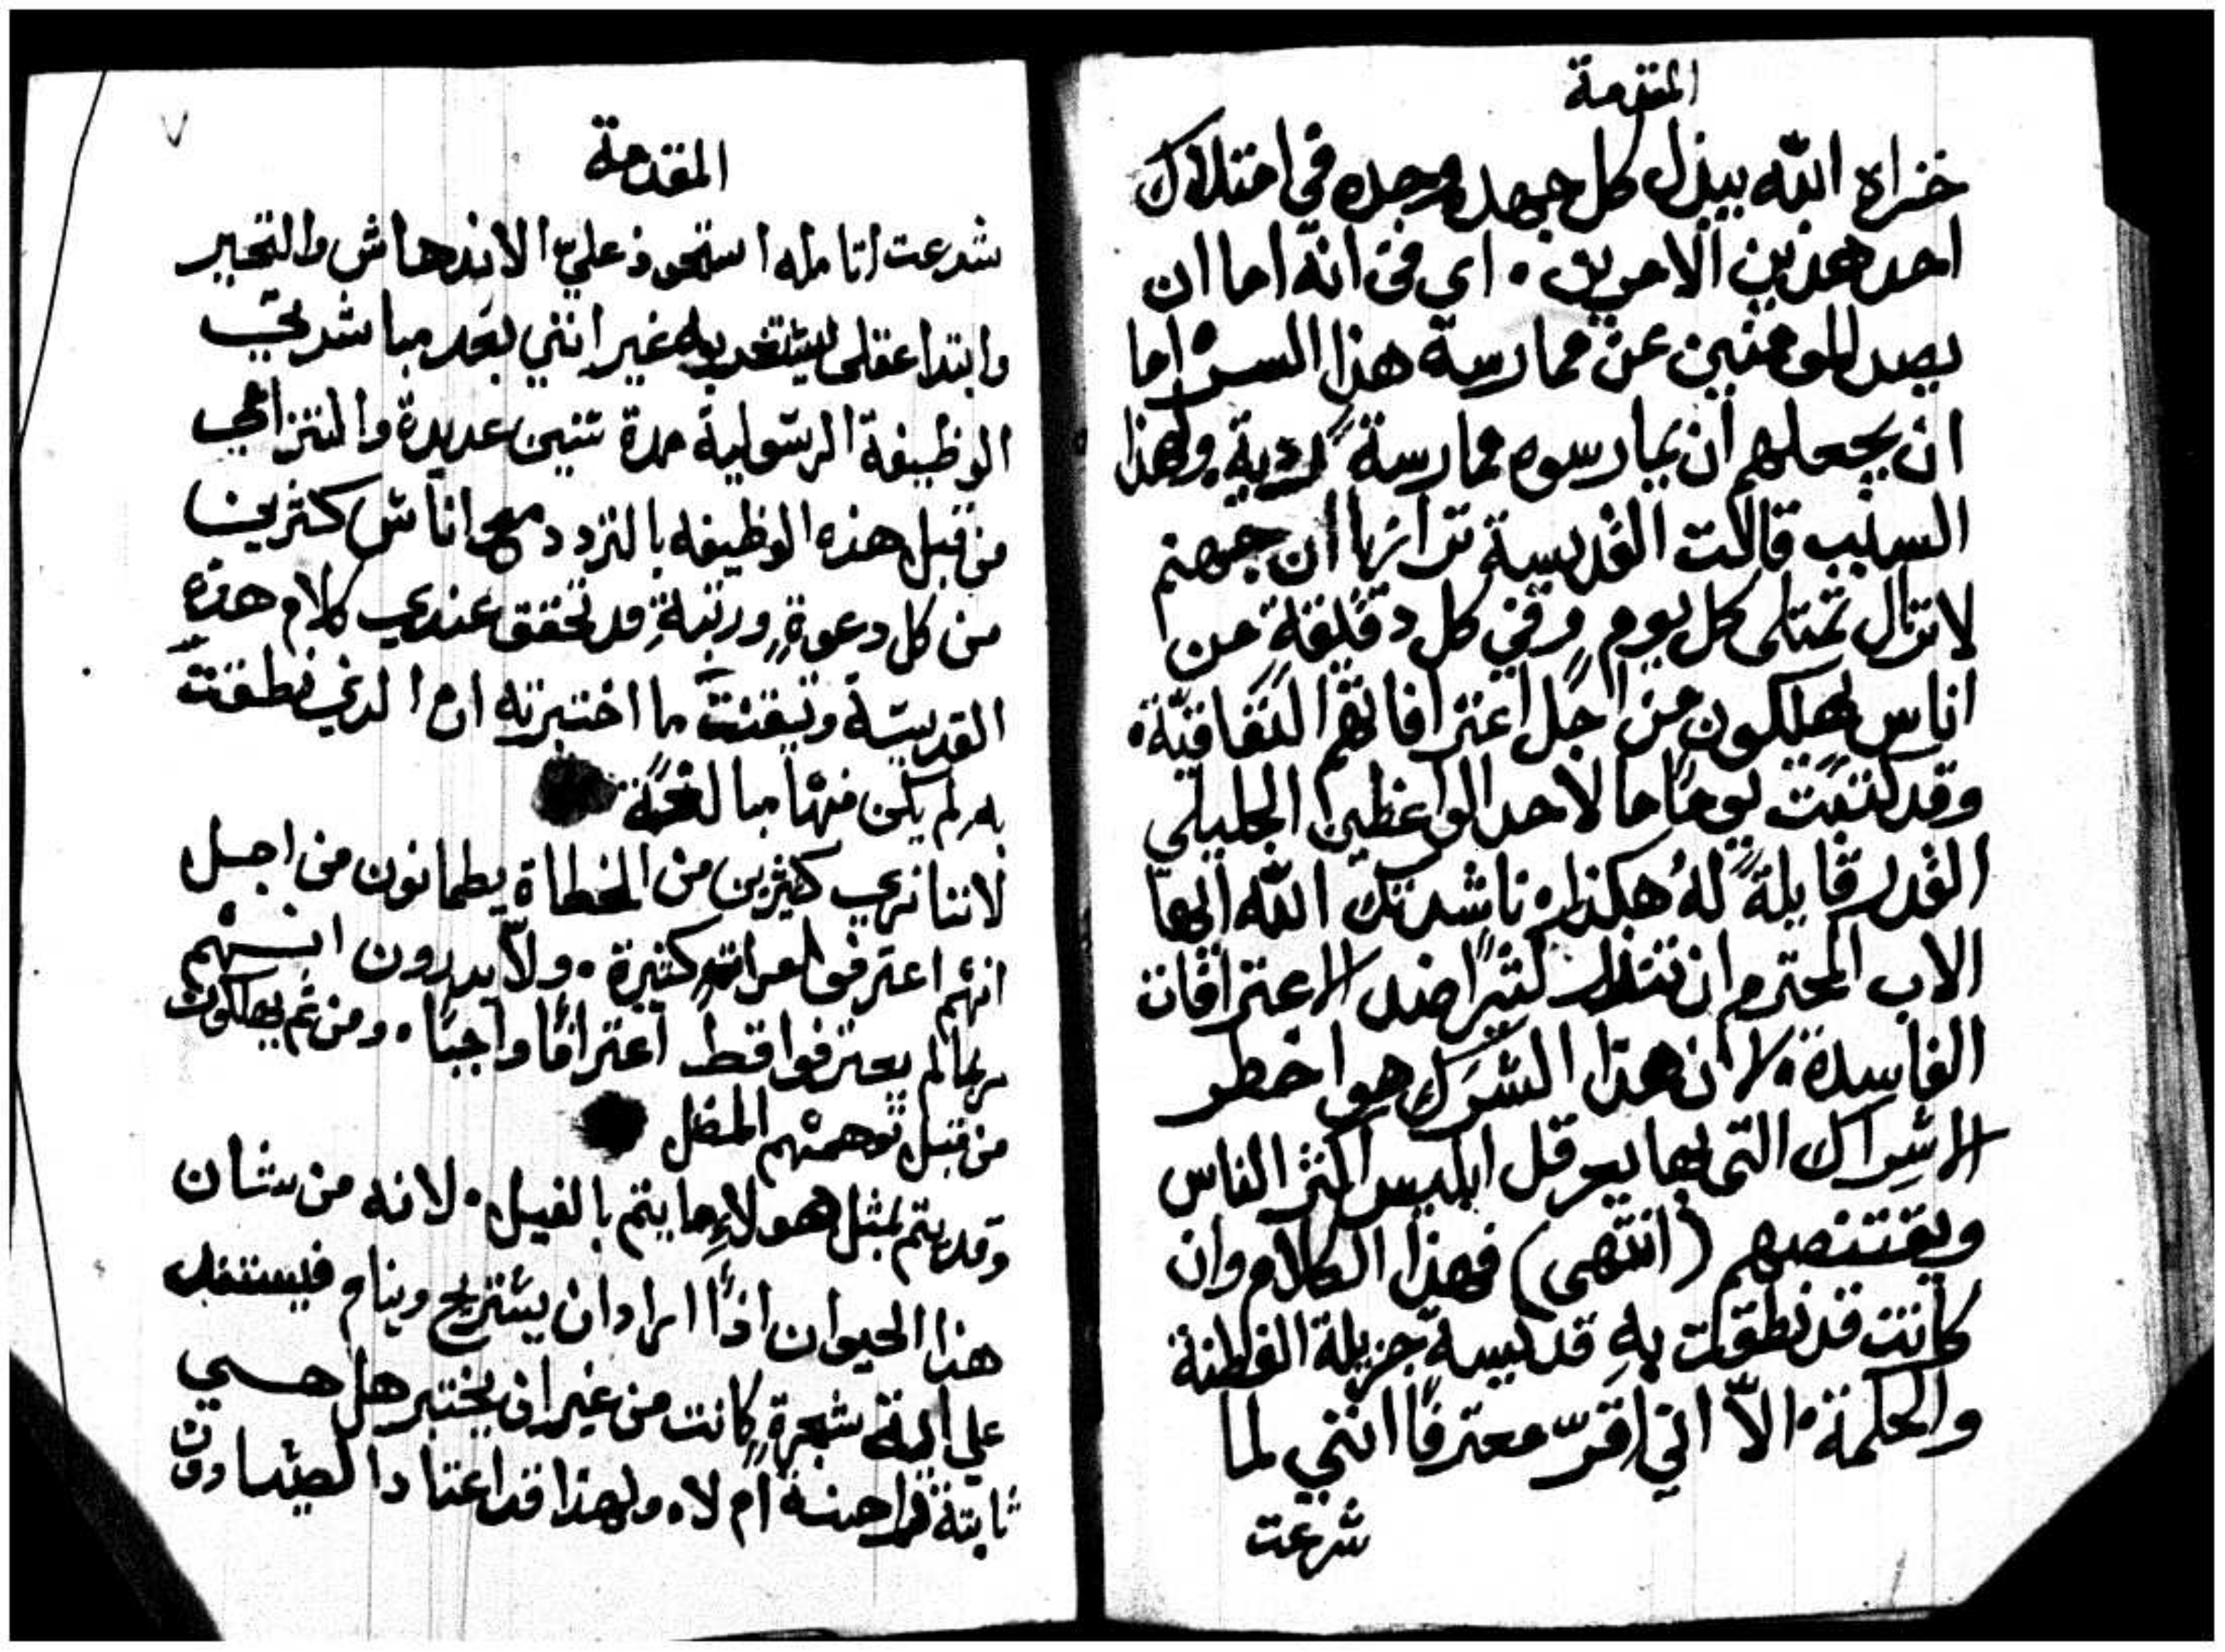 المقدمة
فنراه الله يبذل كل جهده وجده في امتلاك
احد هذين الامرين. اي في انه اما ان
يصد المومنين عن ممارسة هذا السر اما
ان يجعلهم ان يمارسوه ممارسة ردية ولهذا
السبب قالت القديسة ترازيا ان جهنم
لا تزال تمتلى كل يوم وفي كل دقيقة من
اناس يهلكون من اجل اعترافاتهم النفاقية.
وقد كتبت يوما ما لاحد الواعظين الجليلي
القدر قايلة له هكذا. ناشدتك الله ايها
الاب المحترم ان تنذر كثيرا ضد الاعترافات
الفاسدة. لان هذا الشرك هو اخطر
الاشراك التي بها يعرقل ابليس اكثر الناس
ويقتنصهم (انتهى) فهذا الكلام وان
كانت قد نطقت به قديسة جزيلة الفطنة
والحكمة. الا اني اقر معترفا انني لما
شرعت
٧
المقدمة
شرعت اتامله استحوذ علي الاندهاش والتحير
وابتدا عقلى يستغربه غير انني بعد مباشرتي
الوظيفة الرسولية مدة سنين عديدة والتزامي
من قبل هذه الوظيفه بالتردد مع اناس كثيرين
من كل دعوة ورتبة قد تحقق عندي كلام هذه
القديسة وتيقنت مما اختبرته ان الذي نطقت
به لم يكن منها مبالغة
لاننا نري كثيرين من الخطاة يطمانون من اجل
انهم اعترفوا مرات كثيرة. ولا يدرون انهم
ربما لم يعترفوا قط اعترافا واجبا. ومن ثم يهلكون
من قبل توهمهم المضل
وقد يتم لمثل هولاء ما يتم بالفيل. لانه من شان
هذا الحيوان اذا اراد ان يستريح وينام فيستند
علي اية شجرة كانت من غير ان يختبر هل هي
ثابتة راهنة ام لا. ولهذا قد اعتاد الصيادون